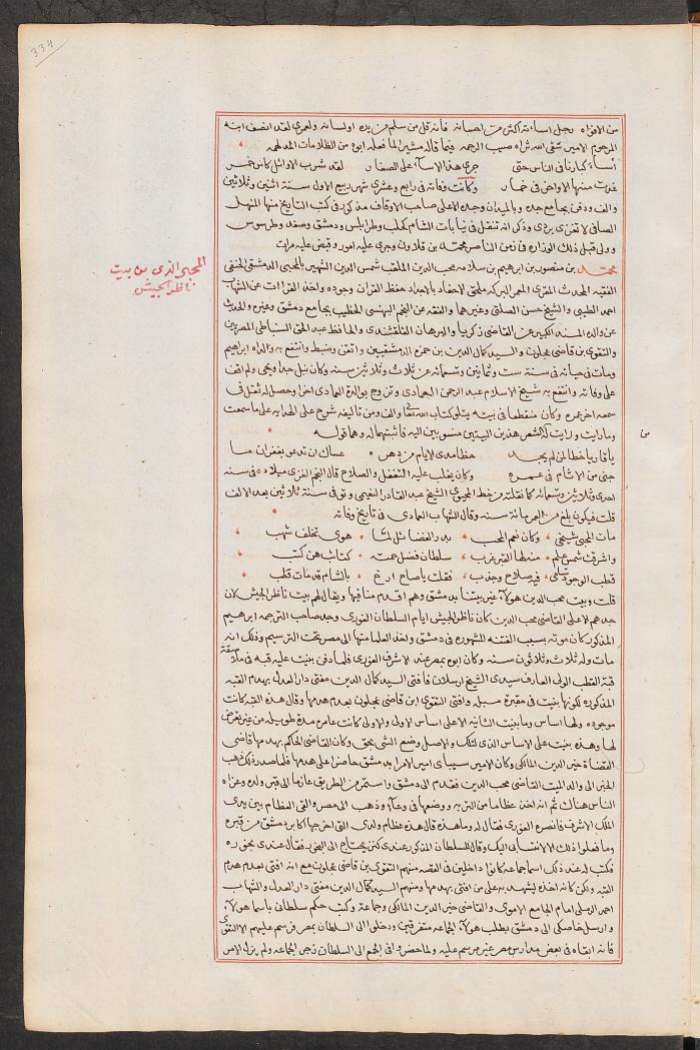 334
من الافزاه وجل اساءته اكثر من احصانه فانه قل من سلم من يده اولسانه ولعمرى لقد انصف ابنه
المرحوم الامين سقى الله ثراه صيب الرحمه فيما قاله مشيرا لما فعله ابوه من الظلامات المدلهمه
أساء كبارنا فى الناس حتى جرى هذا الاسآء على الصغار لقد شرب الاوائل كاس خمر
غدت منها الاواخر فى خمار وكانت وفاته فى رابع وعشرى شهر ربيع الاول سنة اثنين وثلاثين
والف ودفن بجامع جده وبالميدان وجده الاعلى صاحب الاوقاف مذكور فى كتب التاريخ منها المنهل
الصافى لا تغرى بردى وذكر انه تنقل فى نيابات الشام كحلب وطرابلس ودمشق وصفد وطرسوس
وولى قبل ذلك الوزاره فى زمن الناصر محمد بن قلاون وجرى عليه امور وقبض عليه مرات
محمد بن منصور بن ابراهيم بن سلامه محب الدين الملقب شمس الدين الشهير بالمحبى الدمشقى الحنفى
المحبى الذى من بيت
ناظر الجيش
الفقيه المحدث المقرى المعمر البركه ملحق الاحفاد بالاجداد حفظ القران وجوده واخذ القراات عن الشهاب
احمد الطيبى والشيخ حسن الصلتى وغيرهما والفقه عن النجم البهنسى الخطيب بجامع دمشق وغيره والحديث
عن والده المسند الكبير عن القاضى زكريا والبرهان القلقشندى والحافظ عبد الحق السنباطى المصريين
والتقوى بن قاضى عجلون والسيد كمال الدين بن حمزه الدمشقيين واتقن وضبط وانتفع به والده ابراهيم
ومات فى حياته فى سنة ست وثمانين وتسعمائه عن ثلاث وثلاثين سنه وكان نبل جدا ويحيى ولم اقف
على وفاته وانتفع به شيخ الاسلام عبد الرحمن العمادى وتزوج بوالدة العمادى اخرا وحصل له ثقل فى
سمعه اخر عمره وكان منقطعا فى بيته يتلو كتاب الله تعالى والف ومن تاليفه شرح على الهدايه على ما سمعت
من
وما رايت ورايت له الشعر هذين البيتين منسوبين اليه فاثبتهما له وهما قوله
يا قاريا خطا لمن لم يجد حظا مدى الايام من دهره عساك ان تدعو بغفران ما
جنى من الاثام فى عمره وكان يغلب عليه التغفل والصلاح قال النجم الغزى ميلاده فى سنه
احدى وثلاثين وتسعمائه كما نقلته من خط المحيوى الشيخ عبد القادر النعيمى وتوفى سنة ثلاثين بعد الالف
قلت فيكون بلغ من العمر مائة سنه وقال الشهاب العمادى فى تاريخ وفاته
مات المحبى شيخى وكان نعم المحب بدر الفضائل لما هوى تخلف شهب
واشرقت شمس علم منه لها القبر غرب سلطان فضل حمته كتائب هن كتب
قطب الوجود تسلى فيه صلاح وجذب فقلت يا صاح ارخ بالشام قد مات قطب
قلت وبيت محب الدين هولآء غير بيتنا بدمشق وهم اقدم منا فيها ويقال لهم بيت ناظر الجيش كان
جدهم الاعلى القاضى محب الدين كان ناظر الجيش ايام السلطان الغورى وجد صاحب الترجمه ابرهيم
المذكور كان موته بسبب الفتنه المشهوره فى دمشق واخذ العلما منها الى مصر تحت الترسيم وذلك انه
مات وله ثلاث وثلاثون سنه وكان ابوه بمصر عند الاشرف الغورى فلما دفن بنيت عليه قبه فى ملاصقة
قبة القطب الولى العارف سيدى الشيخ ارسلان فافتى السيد كمال الدين مفتى دار العدل بهدم القبه
المذكوره لكونها بنيت فى مقبرة مسبله وافتى التقوى ابن قاضى عجلون بعدم هدمها وقال هذه القبه كانت
موجوده ولها اساس وما بنيت الثانيه الا على اساس الاولى والاولى كانت عامره مدة طويله من غير تعرض
لها وهذه بنيت على الاساس الذى لتلك والاصل وضع الشى بحق وكان القاضى الحاكم بهدمها قاضى
القضاة خير الدين المالكى وكان الامير سيباى امير الامرا بدمشق حاضرا على هدمها فلما صدر ذلك ذهب
الخبر الى والد الميت القاضى محب الدين فقدم الى دمشق واستمر من الطريق عازما الى قبر ولده وعزاه
الناس هناك ثم انه اخذ عظاما من التربه ووضعها فى وعآء وذهب الى مصر والقى العظام بين يدى
الملك الاشرف قانصره الغورى فقال له وما هذه قال هذه عظام ولدى التى اخرجها اكابر دمشق من قبره
وما فعلوا ذلك الا لانتسابى اليك وقال للسلطان المذكور عندى كنز يحتاج الى البخور فقال عندى بخوره
فكتب له عند ذلك اسما جماعه كانوا داخلين فى القصه منهم التقوى بن قاضى عجلون مع انه افتى بعدم هدم
القبه ولكن كانه اخذه ليشهد به على من افتى بهدمها ومنهم السيد كمال الدين مفتى دار العدل والشهاب
احمد الرملى امام الجامع الاموى والقاضى خير الدين المالكى وجماعة وكتب حكم سلطانى باسما هولآء
وارسل خاصكى الى دمشق بطلب هولآء الجماعه متفرقين ودخلوا الى السلطان بمصر فرسم عليهم الا التقوى
فانه ابقاه فى بعض مدارس مصر غير مرسم عليه ولما حضروا فى الجمع الى السلطان زجر الجماعه ولم يزل الامر